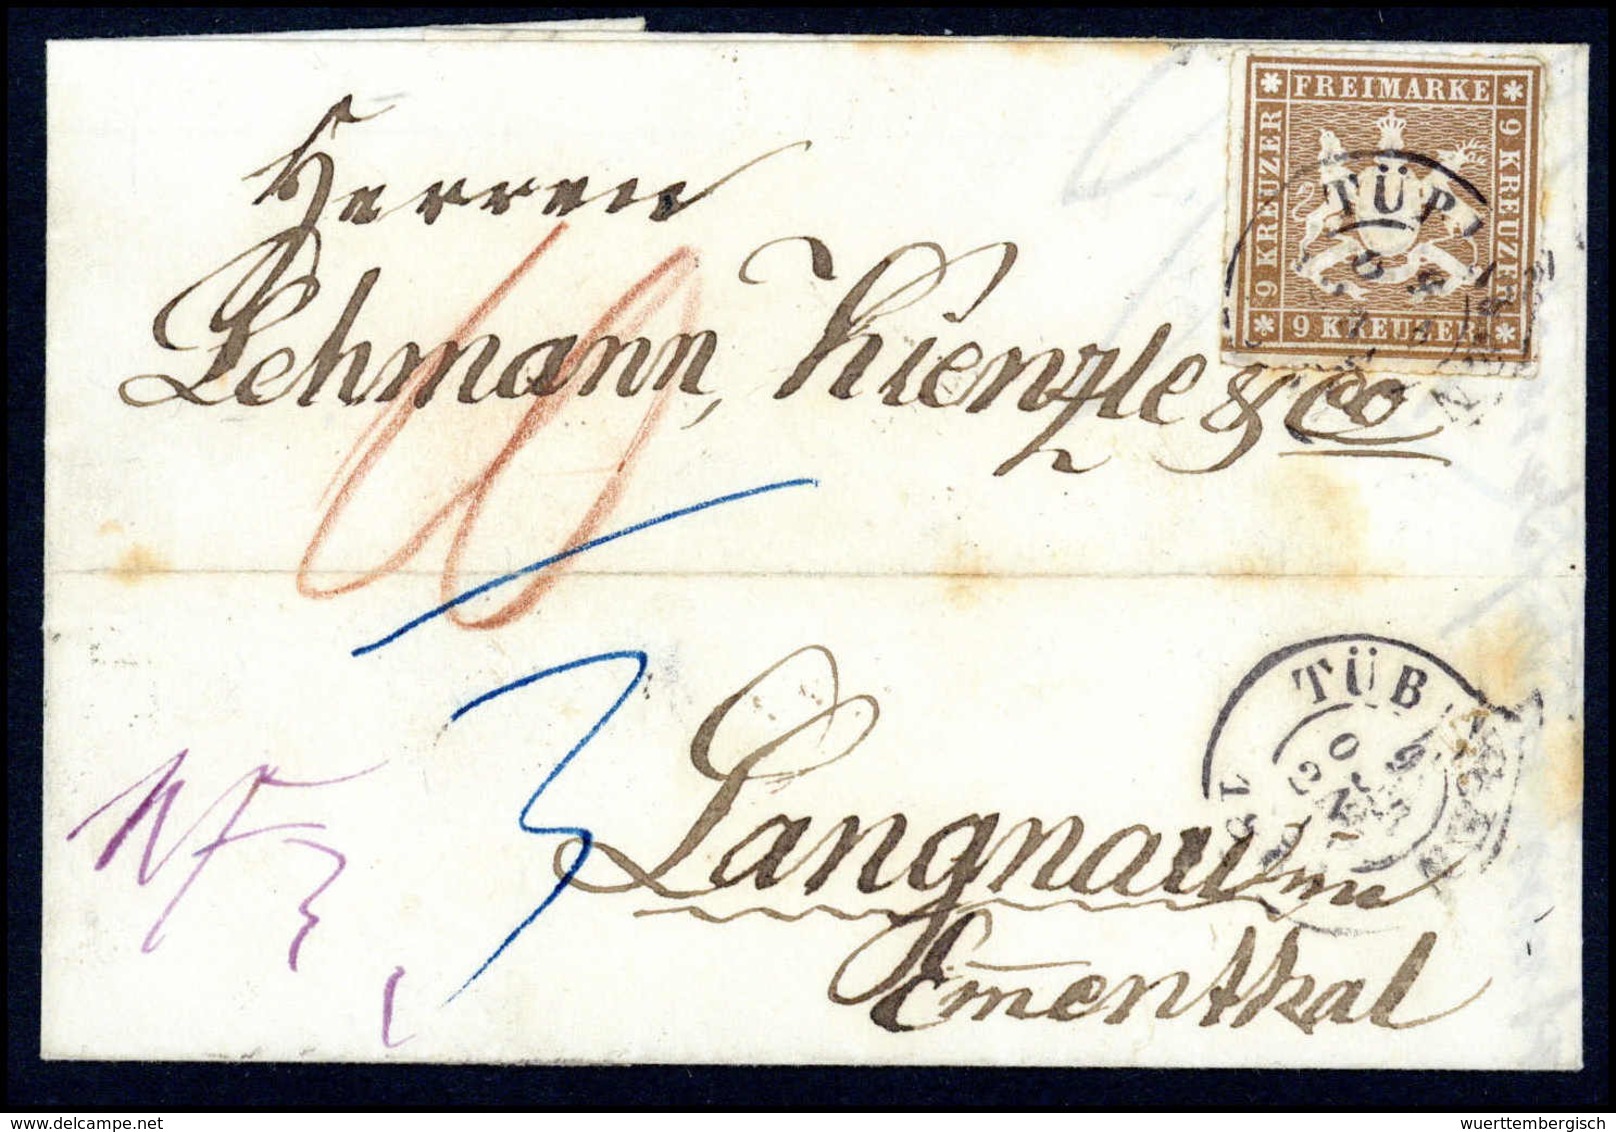 FREIMARKE
9 KREUZER
9 KREUZER
9 KREUZER
TÜB
Herren
Lehmann, Kienzle & Co
60
3
TÜB
Langnau im
Ementhal
WF 3
1
delcampe.net
wuerttembergisch